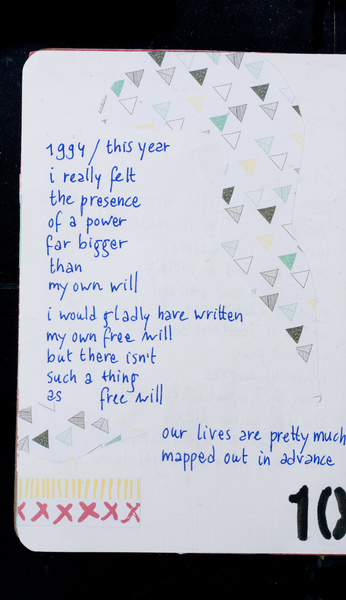 1994 / this year
i really felt
the presence
of a power
far bigger
than
my own will
i would gladly have written
my own free will
but there isn't
such a thing
as free will
our lives are pretty much
mapped out in advance